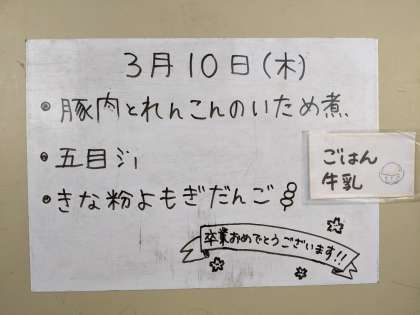 3月10日(木)
・豚肉とれんこんのいため煮
・五目汁
・きな粉よもぎだんご
ごはん
牛乳
卒業おめでとうございます!!